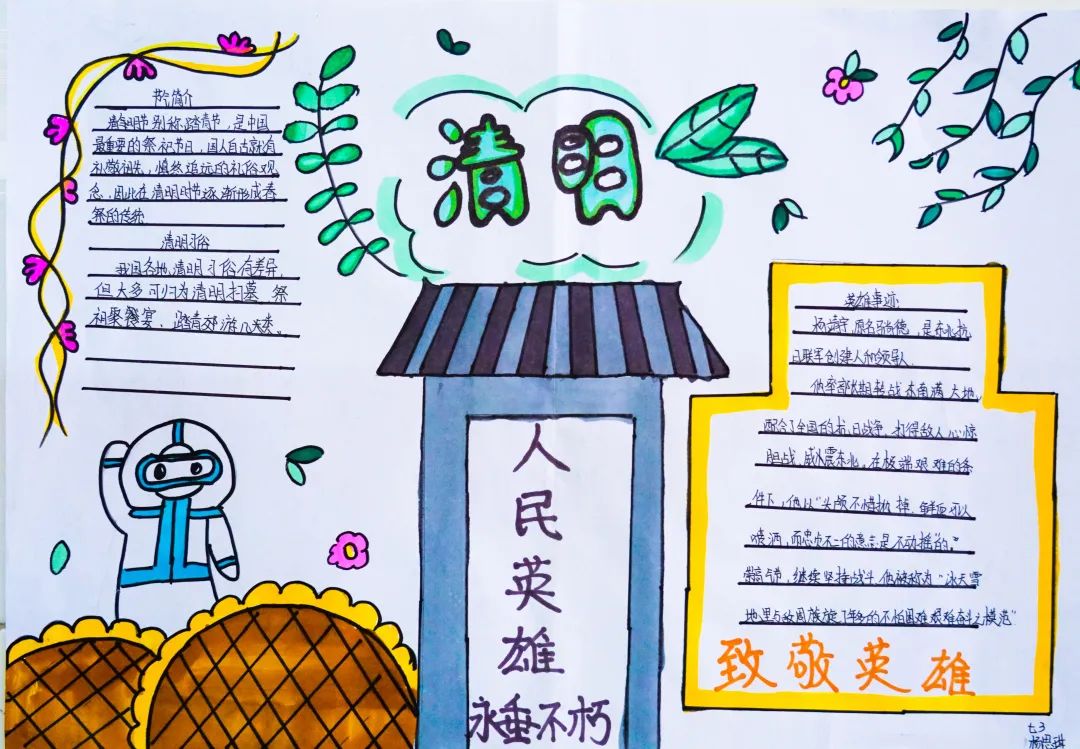 清明
节气简介
清明节别称踏青节，是中国
最重要的祭祀节日，国人自古就有
礼敬祖先，慎终追远的礼俗观
念，因此在清明时节逐渐形成春
祭的传统
清明习俗
我国各地清明习俗有差异，
但大多可归为清明扫墓、祭
祖聚餐宴、踏青郊游几大类。
人
民
英
雄
永垂不朽
英雄事迹
杨靖宇，原名马尚德，是东北抗
日联军创建人和领导人
他率部长期转战东南满大地，
配合了全国的抗日战争，打得敌人心惊
胆战，威震东北，在极端艰难的条
件下，他以“头颅不惜抛掉，鲜血可以
喷洒，而忠贞不二的意志是不动摇的。”
高气节，继续坚持战斗，他被称为“冰天雪
地里与敌周旋了年多的不怕困难艰难奋斗之模范”
致敬英雄
七3
杨思琪